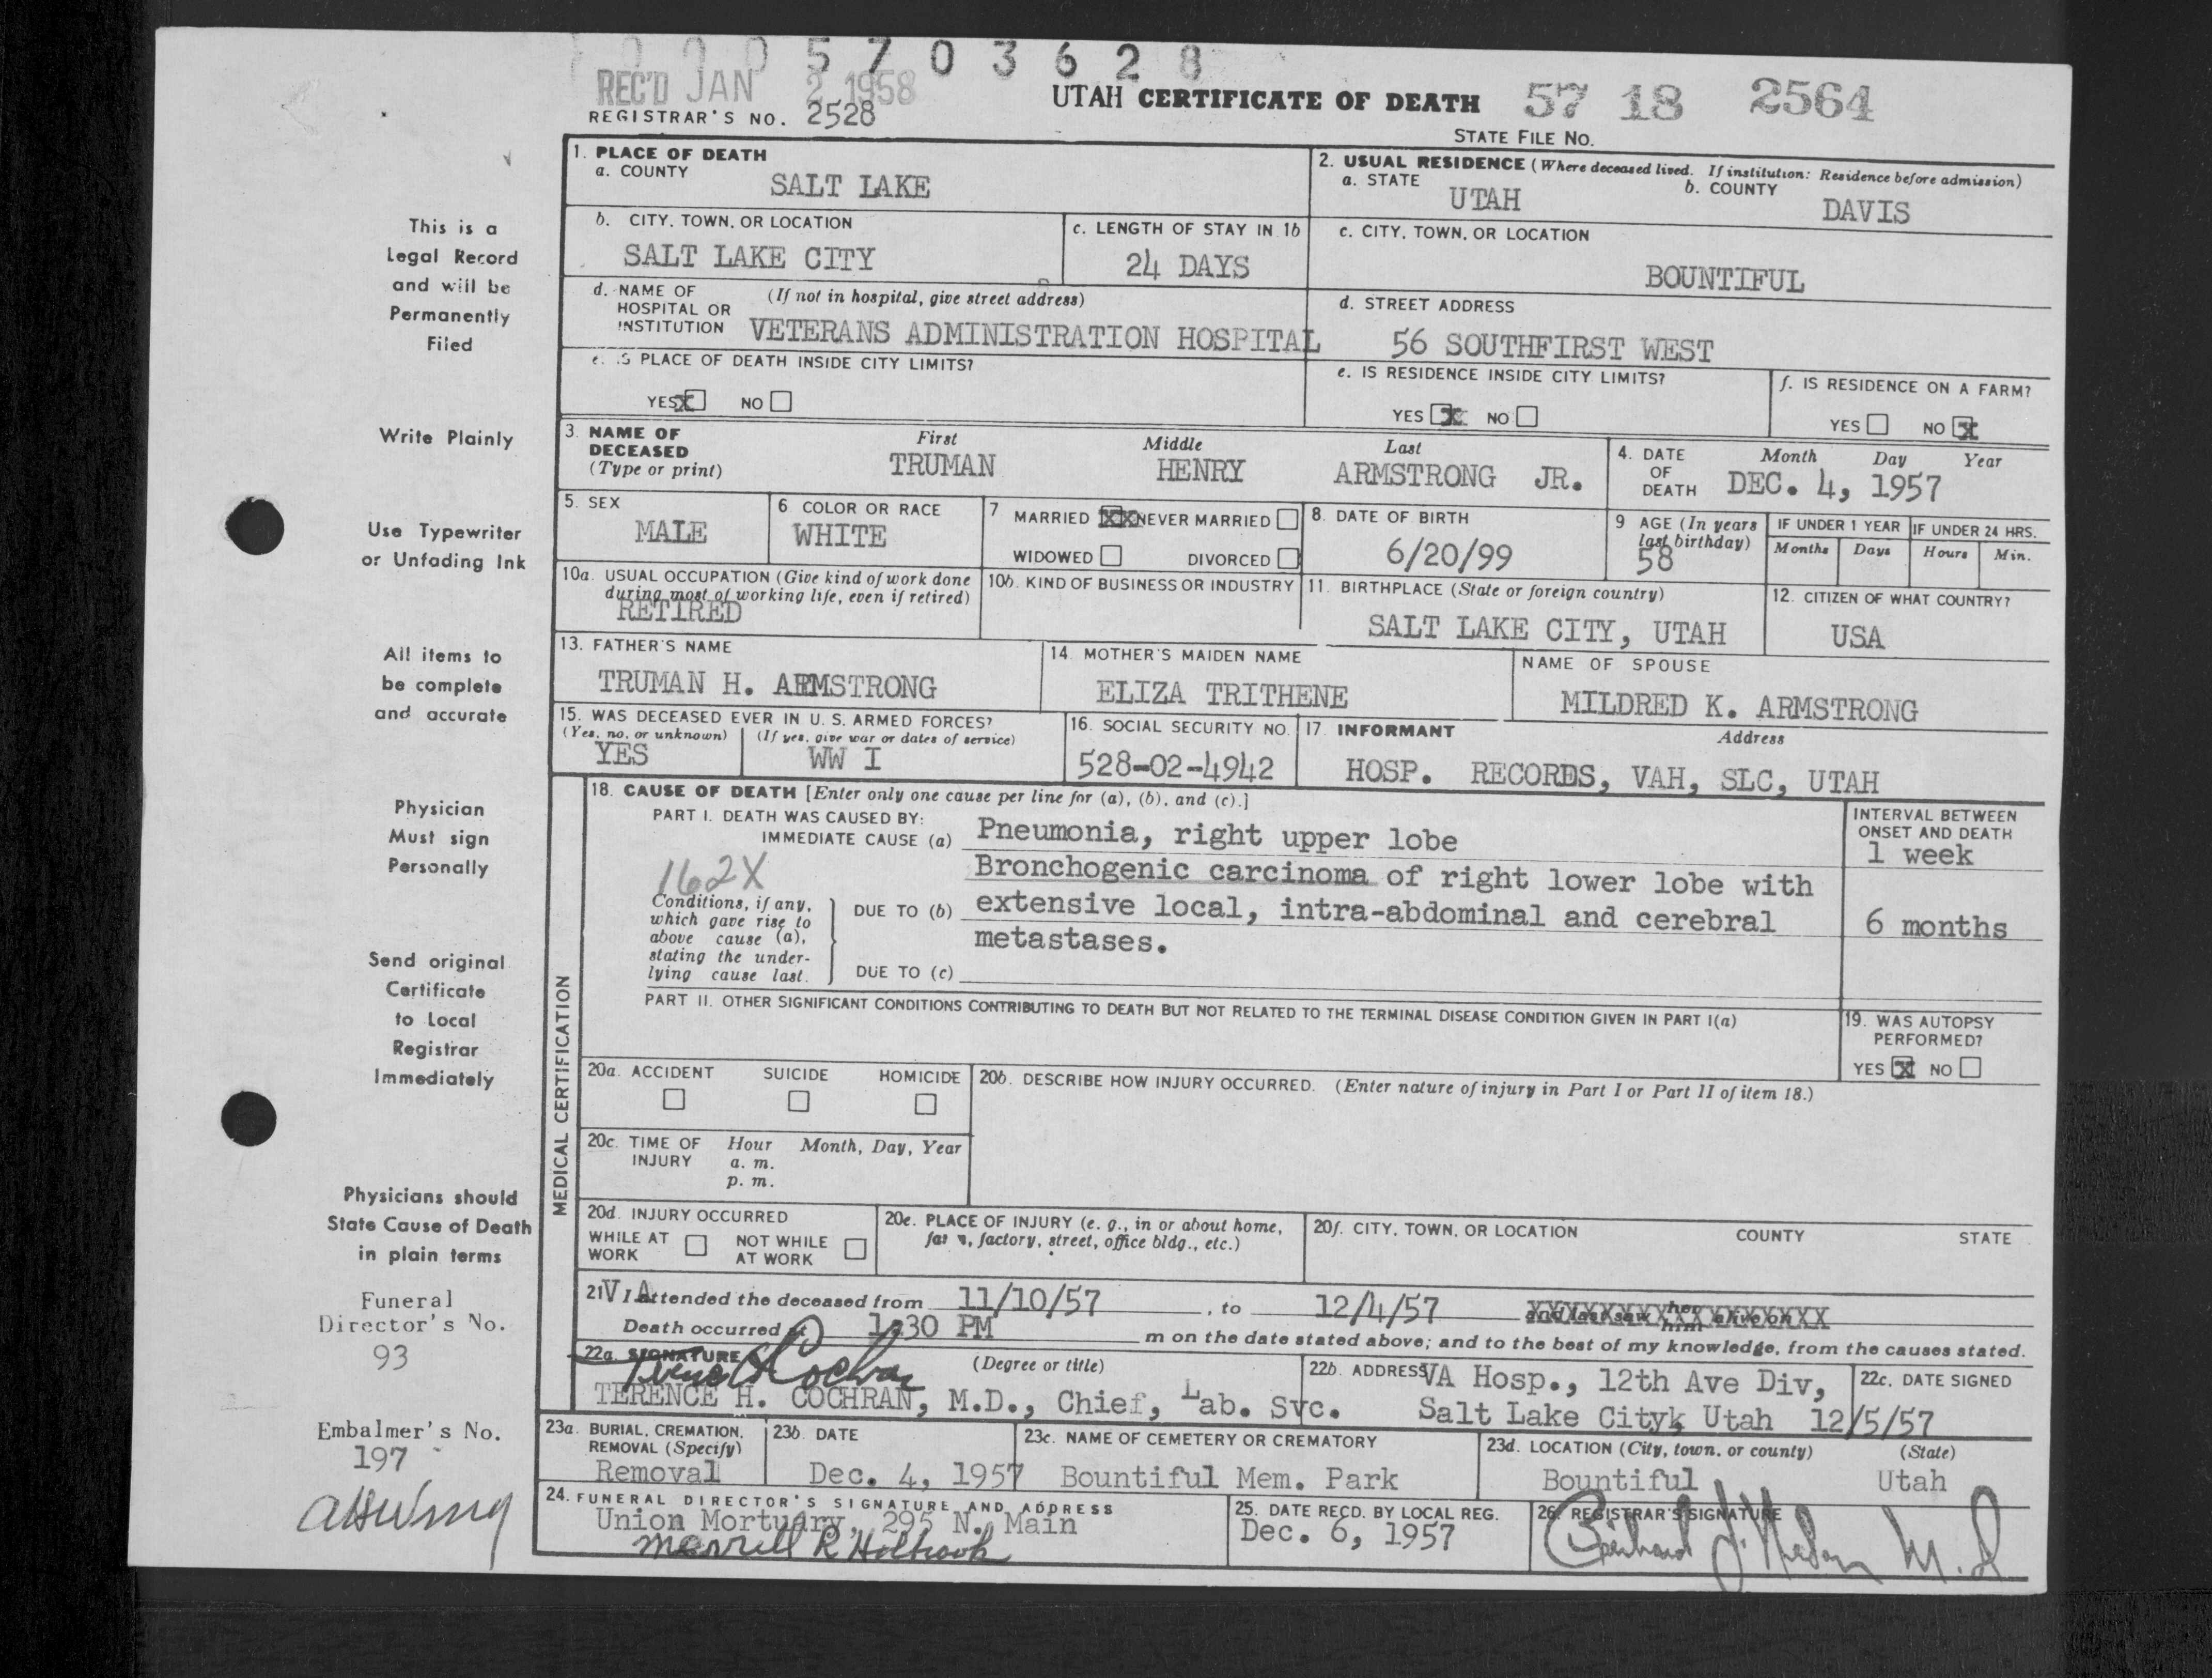 0005703628
REC'D JAN 2 1958
UTAH CERTIFICATE OF DEATH 57 18 2564
REGISTRAR'S NO. 2528
STATE FILE NO.
1. PLACE OF DEATH
a. COUNTY
SALT LAKE
2. USUAL RESIDENCE (Where deceased lived. If institution: Residence before admission)
a. STATE b. COUNTY
UTAH DAVIS
b. CITY, TOWN, OR LOCATION
SALT LAKE CITY
c. LENGTH OF STAY IN 1b
24 DAYS
c. CITY, TOWN, OR LOCATION
BOUNTIFUL
d. NAME OF HOSPITAL OR INSTITUTION (If not in hospital, give street address)
VETERANS ADMINISTRATION HOSPITAL
d. STREET ADDRESS
56 SOUTHFIRST WEST
e. IS PLACE OF DEATH INSIDE CITY LIMITS?
YES X NO
e. IS RESIDENCE INSIDE CITY LIMITS?
YES X NO
f. IS RESIDENCE ON A FARM?
YES NO X
3. NAME OF DECEASED (Type or print)
First Middle Last
TRUMAN HENRY ARMSTRONG JR.
4. DATE OF DEATH
Month Day Year
DEC. 4, 1957
5. SEX
MALE
6 COLOR OR RACE
WHITE
7 MARRIED XX NEVER MARRIED
WIDOWED DIVORCED
8. DATE OF BIRTH
6/20/99
9 AGE (In years last birthday)
58
IF UNDER 1 YEAR
Months Days
IF UNDER 24 HRS.
Hours Min.
10a. USUAL OCCUPATION (Give kind of work done
during most of working life, even if retired)
RETIRED
10b. KIND OF BUSINESS OR INDUSTRY
11. BIRTHPLACE (State or foreign country)
SALT LAKE CITY, UTAH
12. CITIZEN OF WHAT COUNTRY?
USA
13. FATHER'S NAME
TRUMAN H. ARMSTRONG
14. MOTHER'S MAIDEN NAME
ELIZA TRITHENE
NAME OF SPOUSE
MILDRED K. ARMSTRONG
15. WAS DECEASED EVER IN U. S. ARMED FORCES?
(Yes, no, or unknown) (If yes, give war or dates of service)
YES WW I
16. SOCIAL SECURITY NO.
528-02-4942
17. INFORMANT Address
HOSP. RECORDS, VAH, SLC, UTAH
MEDICAL CERTIFICATION
18. CAUSE OF DEATH [Enter only one cause per line for (a), (b), and (c).]
PART I. DEATH WAS CAUSED BY:
IMMEDIATE CAUSE (a) Pneumonia, right upper lobe
INTERVAL BETWEEN
ONSET AND DEATH
1 week
162X
Conditions, if any,
which gave rise to
above cause (a),
stating the under-
lying cause last.
Bronchogenic carcinoma of right lower lobe with
DUE TO (b) extensive local, intra-abdominal and cerebral
6 months
metastases.
DUE TO (c)
PART II. OTHER SIGNIFICANT CONDITIONS CONTRIBUTING TO DEATH BUT NOT RELATED TO THE TERMINAL DISEASE CONDITION GIVEN IN PART I(a)
19. WAS AUTOPSY
PERFORMED?
YES X NO
20a. ACCIDENT SUICIDE HOMICIDE
20b. DESCRIBE HOW INJURY OCCURRED. (Enter nature of injury in Part I or Part II of item 18.)
20c. TIME OF INJURY
Hour Month, Day, Year
a. m.
p. m.
20d. INJURY OCCURRED
WHILE AT WORK NOT WHILE AT WORK
20e. PLACE OF INJURY (e. g., in or about home,
farm, factory, street, office bldg., etc.)
20f. CITY, TOWN, OR LOCATION COUNTY STATE
21 V A I attended the deceased from 11/10/57, to 12/4/57 and last saw her him alive on
Death occurred at 1:30 PM m on the date stated above; and to the best of my knowledge, from the causes stated.
22a. SIGNATURE (Degree or title)
Terence H Cochran
TERENCE H. COCHRAN, M.D., Chief, Lab. Svc.
22b. ADDRESS VA Hosp., 12th Ave Div,
Salt Lake City, Utah
22c. DATE SIGNED
12/5/57
23a. BURIAL, CREMATION, REMOVAL (Specify)
Removal
23b. DATE
Dec. 4, 1957
23c. NAME OF CEMETERY OR CREMATORY
Bountiful Mem. Park
23d. LOCATION (City, town, or county) (State)
Bountiful Utah
24. FUNERAL DIRECTOR'S SIGNATURE AND ADDRESS
Union Mortuary, 295 N. Main
Merrill R Holbrook
25. DATE RECD. BY LOCAL REG.
Dec. 6, 1957
26. REGISTRAR'S SIGNATURE
This is a
Legal Record
and will be
Permanently
Filed
Write Plainly
Use Typewriter
or Unfading Ink
All items to
be complete
and accurate
Physician
Must sign
Personally
Send original
Certificate
to Local
Registrar
Immediately
Physicians should
State Cause of Death
in plain terms
Funeral
Director's No.
93
Embalmer's No.
197